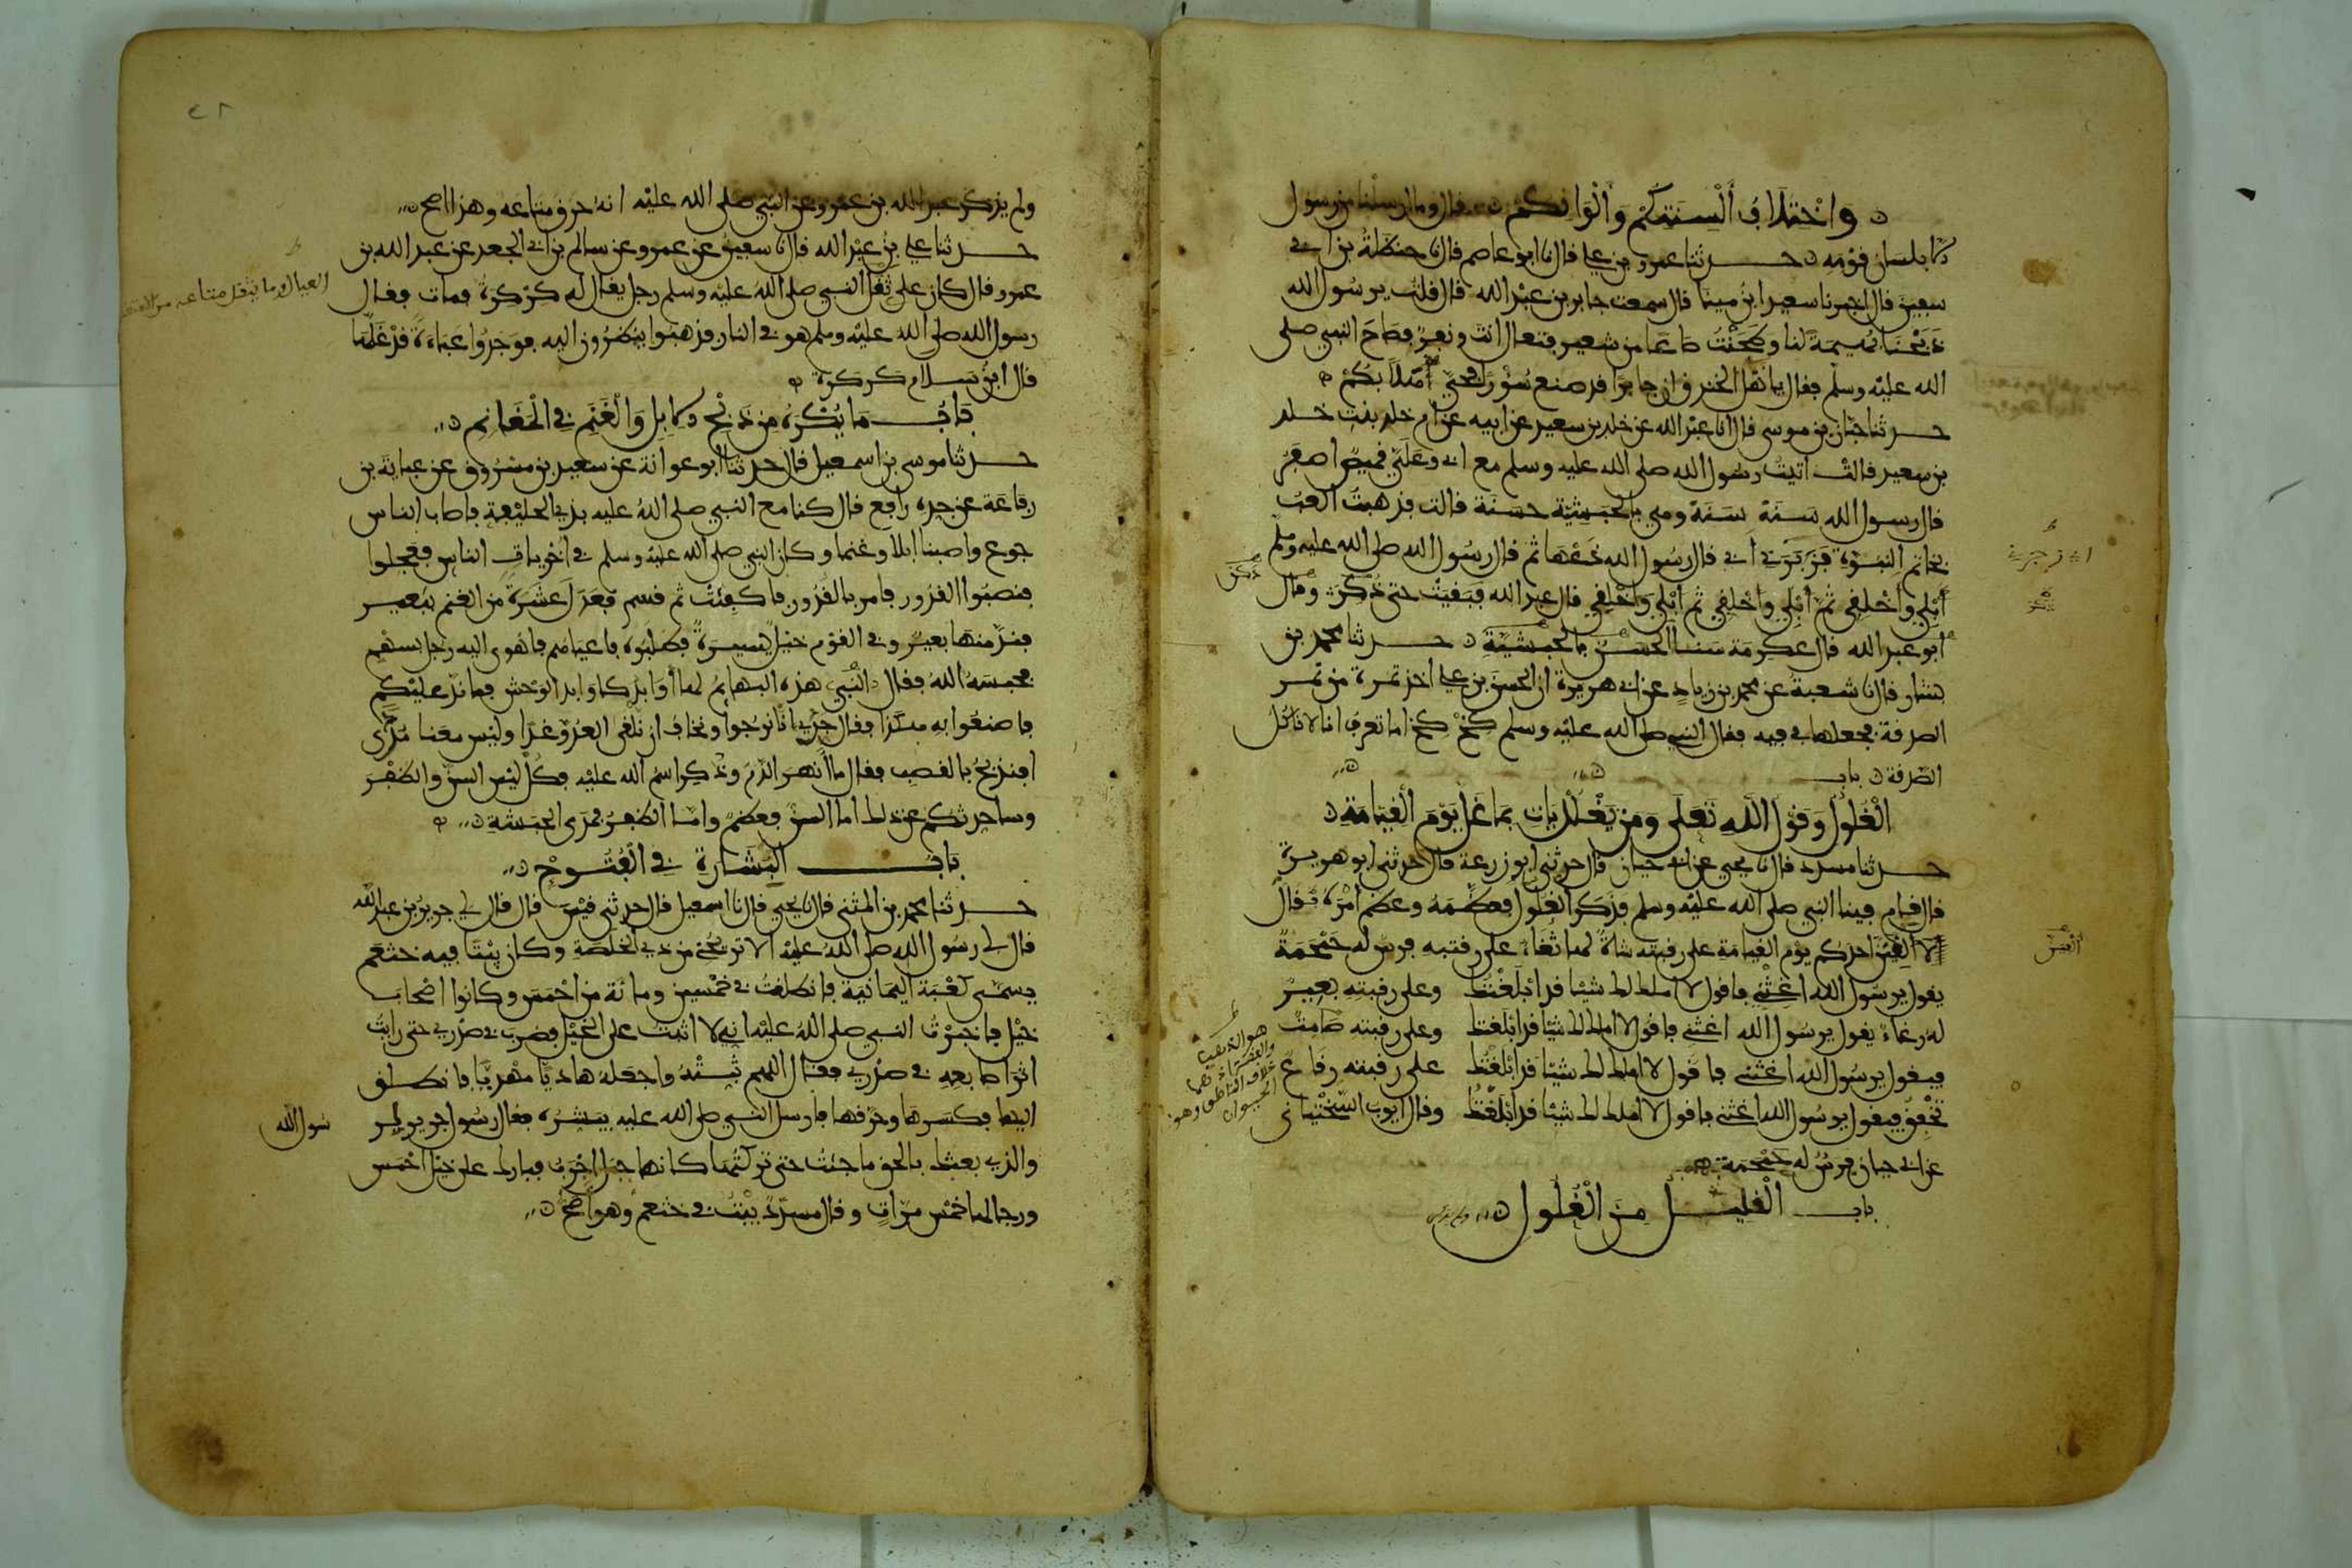 وَاخْتِلَافُ أَلْسِنَتِكُمْ وَأَلْوَانِكُمْ قال وما ارسلنا من رسول
الا بلسان قومه حدثنا عمرو بن علي قال نا ابو عاصم قال نا حنظلة بن ابي
سفين قال اخبرنا سعيد ابن مينا قال سمعت جابر بن عبد الله قال قلت يرسول الله
ذبحنا بهيمة لنا وطحنت صاعا من شعير فتعال انت ونفر فصاح النبي صلى
الله عليه وسلم فقال يا نهل الخندق ان جابرا قد صنع سؤرا فحي اهلا بكم
حدثنا حبان بن موسى قال انا عبد الله عن خلد بن سعيد عن ابيه عن ام خلد بنت خلد
بن سعيد قالت اتيت رسول الله صلى الله عليه وسلم مع ابي وعلي قميص اصفر
قال رسول الله سنه سنه وهي بالحبشية حسنة قالت فذهبت العب
بخاتم النبوة فزبرني ابي قال رسول الله دعها ثم قال رسول الله صلى الله عليه وسلم
أبلي وأخلفي ثم أبلي وأخلفي ثم أبلي وأخلفي قال عبد الله فبقيت حتى ذكرت وقال
ابو عبد الله قال عكرمة سنا الحسن بالحبشية حدثنا محمد بن
بشار قال نا شعبة عن محمد بن زياد عن ابي هريرة ان الحسن بن علي اخذ تمرة من تمر
الصدقة فجعلها في فيه فقال النبي صلى الله عليه وسلم كخ كخ اما تعرف انا لا ناكل
الصدقة باب
الْغُلُولِ وَقَوْلِ اللَّهِ تَعَلَى وَمَنْ يَغْلُلْ يَاتِ بِمَا غَلَّ يَوْمَ الْقِيَامَةِ
حدثنا مسدد قال نا يحيى عن ابي حيان قال حدثني ابو زرعة قال حدثني ابو هريرة
قال قام فينا النبي صلى الله عليه وسلم فذكر الغلول فعظمه وعظم امره فقال
لا الفين احدكم يوم القيامة على رقبته شاة لها ثغاء على رقبته فرس له حمحمة
يقول يرسول الله اغثني فاقول لا املك لك شيئا قد ابلغتك وعلى رقبته بعير
له رغاء يقول يرسول الله اغثني فاقول لا املك لك شيئا قد ابلغتك وعلى رقبته صامت
فيقول يرسول الله اغثني فاقول لا املك لك شيئا قد ابلغتك على رقبته رقاع
تخفق فيقول يرسول الله اغثني فاقول لا املك لك شيئا قد ابلغتك وقال ايوب السختياني
عن ابي حيان فرس له حمحمة
باب الْقَلِيلِ مِنَ الْغُلُولِ
ولم يذكر عبد الله بن عمرو عن النبي صلى الله عليه انه حرق متاعه وهذا اصح
حدثنا علي بن عبد الله قال نا سفين عن عمرو عن سالم بن ابي الجعد عن عبد الله بن
عمرو قال كان على ثقل النبي صلى الله عليه وسلم رجل يقال له كركرة فمات فقال
رسول الله صلى الله عليه وسلم هو في النار فذهبوا ينظرون اليه فوجدوا عباءة قد غلها
قال ابن سلام كركرة
بَابُ مَا يُكْرَهُ مِن ذَبْحِ الابِلِ وَالْغَنَمِ فِي الْمَغَانِمِ
حدثنا موسى بن اسمعيل قال حدثنا ابو عوانة عن سعيد بن مسروق عن عباية بن
رفاعة عن جده رافع قال كنا مع النبي صلى الله عليه بذي الحليفة فاصاب الناس
جوع واصبنا ابلا وغنما وكان النبي صلى الله عليه وسلم في أخريات الناس فعجلوا
فنصبوا القدور فامر بالقدور فاكفئت ثم قسم فعدل عشرة من الغنم ببعير
فند منها بعير وفي القوم خيل يسيرة فطلبوه فاعياهم فاهوى اليه رجل بسهم
فحبسه الله فقال النبي هذه البهائم لها أوابد كاوابد الوحش فما ند عليكم
فاصنعوا به هكذا فقال جدي انا نرجوا او نخاف ان نلقى العدو غدا وليس معنا مدى
افنذبح بالقصب فقال ما انهر الدم وذكر اسم الله عليه فكل ليس السن والظفر
وساحدثكم عن ذلك اما السن فعظم واما الظفر فمدى الحبشة
بَابُ الْبِشَارَةِ فِي الْفُتُوحِ
حدثنا محمد بن المثنى قال نا يحيى قال نا اسمعيل قال حدثني قيس قال قال لي جرير بن عبد الله
قال لي رسول الله صلى الله عليه الا تريحني من ذي الخلصة وكان بيتا فيه خثعم
يسمى كعبة اليمانية فانطلقت في خمسين ومائة من احمس وكانوا اصحاب
خيل فاخبرت النبي صلى الله عليه اني لا اثبت على الخيل فضرب في صدري حتى رايت
اثر اصابعه في صدري فقال اللهم ثبته واجعله هاديا مهديا فانطلق
اليها فكسرها وحرقها فارسل النبي صلى الله عليه يبشره فقال رسول جرير لر
سول الله
والذي بعثك بالحق ما جئت حتى تركتها كانها جمل اجرب فبارك على خيل احمس
ورجالها خمس مرات وقال مسدد بيت في خثعم وهو اصح